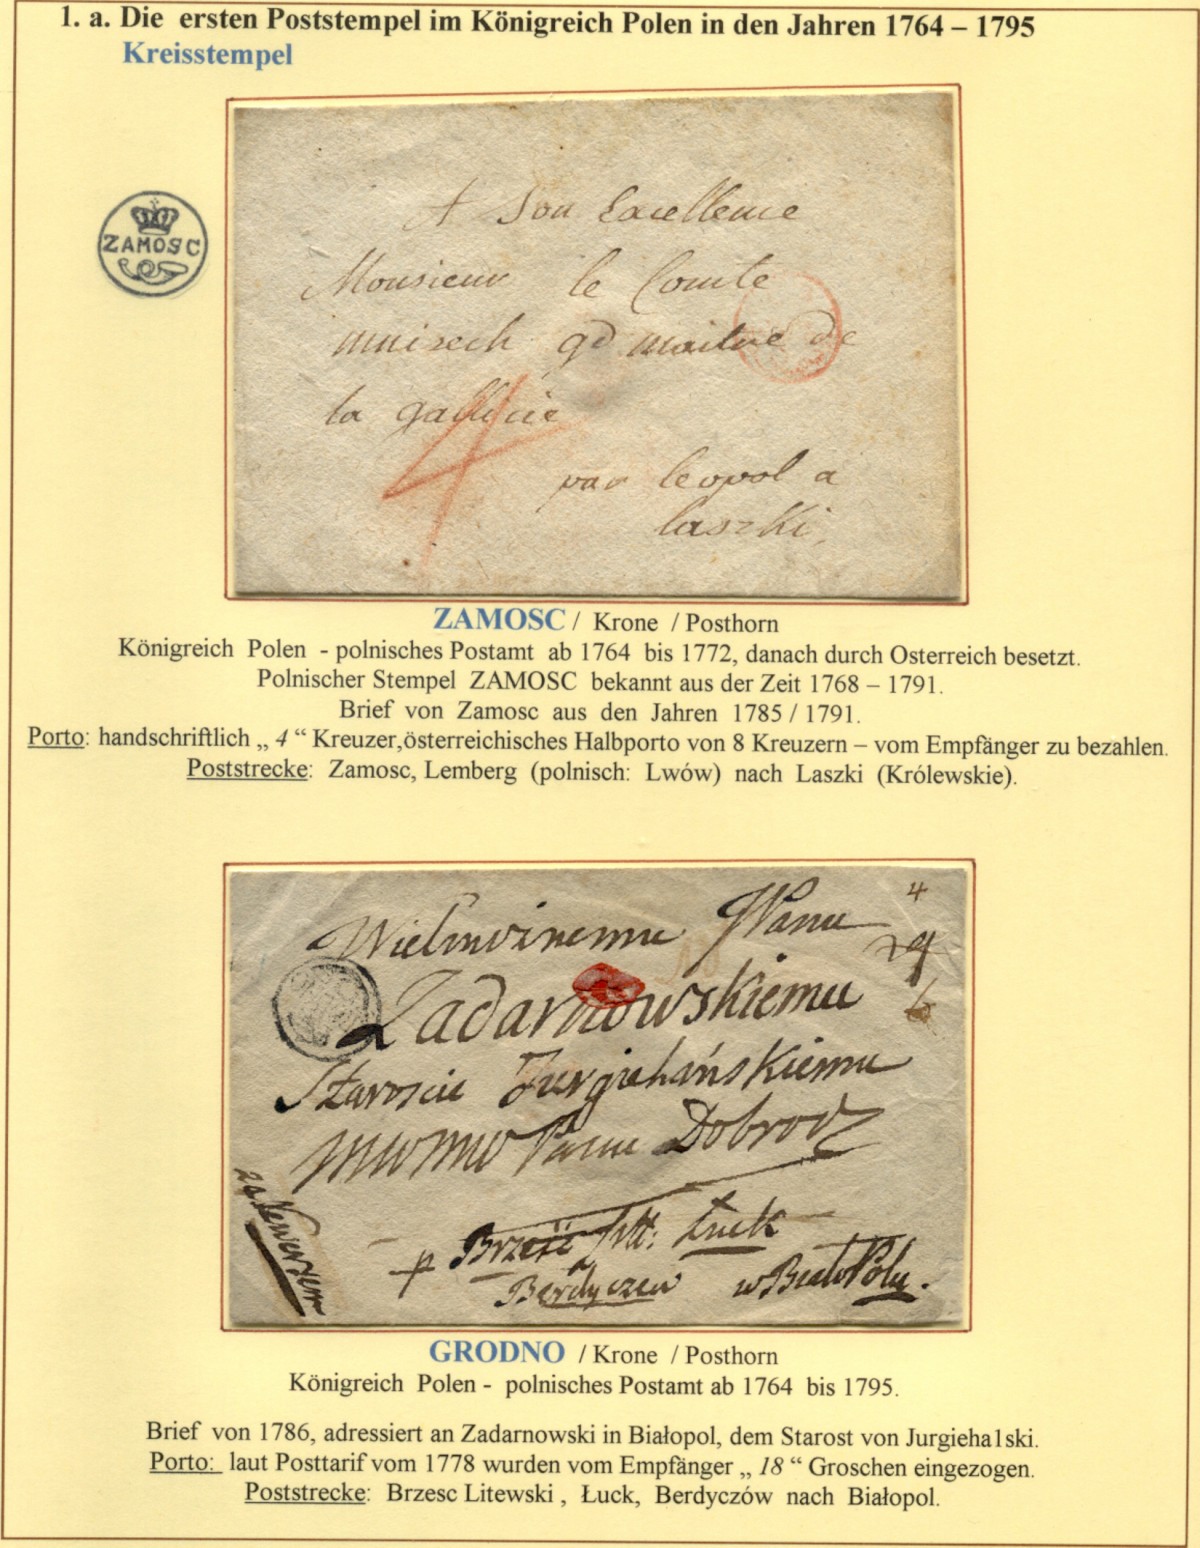 1. a. Die ersten Poststempel im Königreich Polen in den Jahren 1764 – 1795
Kreisstempel
ZAMOSC
A Son Excellence
Monsieur le Comte
mnisech gd maitre de
la gallicie
4
par leopol a
laszki,
ZAMOSC / Krone / Posthorn
Königreich Polen - polnisches Postamt ab 1764 bis 1772, danach durch Osterreich besetzt.
Polnischer Stempel ZAMOSC bekannt aus der Zeit 1768 – 1791.
Brief von Zamosc aus den Jahren 1785 / 1791.
Porto: handschriftlich „ 4 “ Kreuzer,österreichisches Halbporto von 8 Kreuzern – vom Empfänger zu bezahlen.
Poststrecke: Zamosc, Lemberg (polnisch: Lwów) nach Laszki (Królewskie).
4
Wielmoznemu JPanu
Zadarnowskiemu
Staroscie Jurgiehańskiemu
Panu Dobrodz
Brześć Litt: Łuck
Berdyczew w BiałoPolu.
GRODNO / Krone / Posthorn
Königreich Polen - polnisches Postamt ab 1764 bis 1795.
Brief von 1786, adressiert an Zadarnowski in Białopol, dem Starost von Jurgieha1ski.
Porto: laut Posttarif vom 1778 wurden vom Empfänger „ 18 “ Groschen eingezogen.
Poststrecke: Brzesc Litewski , Łuck, Berdyczów nach Białopol.